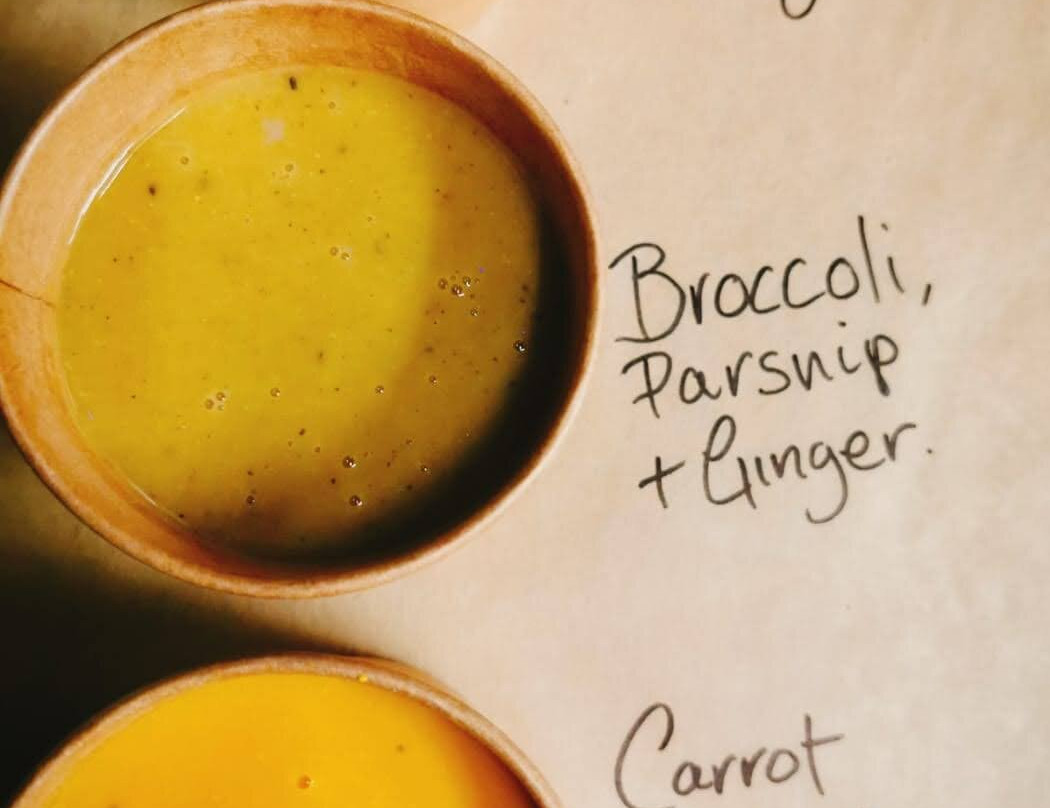 Broccoli,
Parsnip
+ Ginger.
Carrot